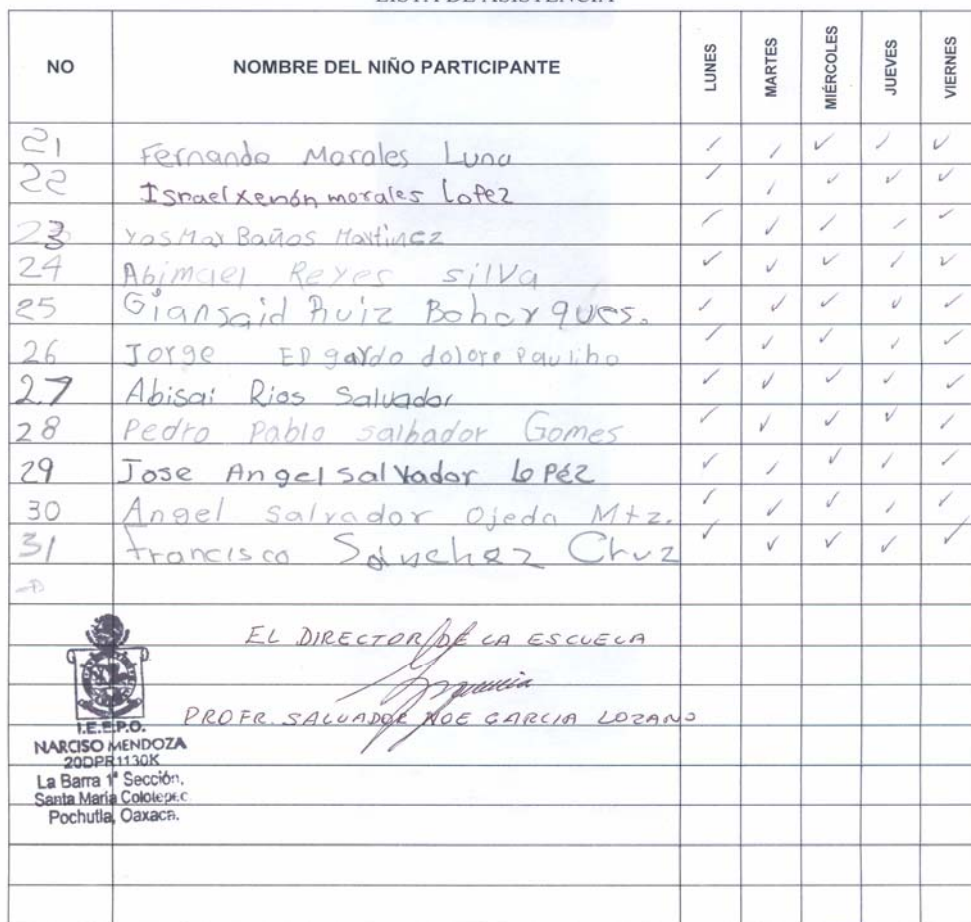 LISTA DE ASISTENCIA
NO NOMBRE DEL NIÑO PARTICIPANTE LUNES MARTES MIÉRCOLES JUEVES VIERNES
21 Fernando Morales Luna ✓ ✓ ✓ ✓ ✓
22 Israel xenón morales Lopez ✓ ✓ ✓ ✓ ✓
23 YosMar Baños Martinez ✓ ✓ ✓ ✓ ✓
24 Abimael Reyes silva ✓ ✓ ✓ ✓ ✓
25 Giansaid Ruiz ✓ ✓ ✓ ✓ ✓
26 Jorge EDgardo dolore Pauliho ✓ ✓ ✓ ✓ ✓
27 Abisai Rios Salvador ✓ ✓ ✓ ✓ ✓
28 Pedro Pablo salbador Gomes ✓ ✓ ✓ ✓ ✓
29 Jose Angel salvador Lopéz ✓ ✓ ✓ ✓ ✓
30 Angel Salvador Ojeda Mtz. ✓ ✓ ✓ ✓ ✓
31 francisco Sanchez Cruz ✓ ✓ ✓ ✓ ✓
EL DIRECTOR DE LA ESCUELA
PROFR. SALVADOR NOE GARCIA LOZANO
I.E.E.P.O.
NARCISO MENDOZA
20DPR1130K
La Barra 1ª Sección,
Santa María Colotepec
Pochutla, Oaxaca.